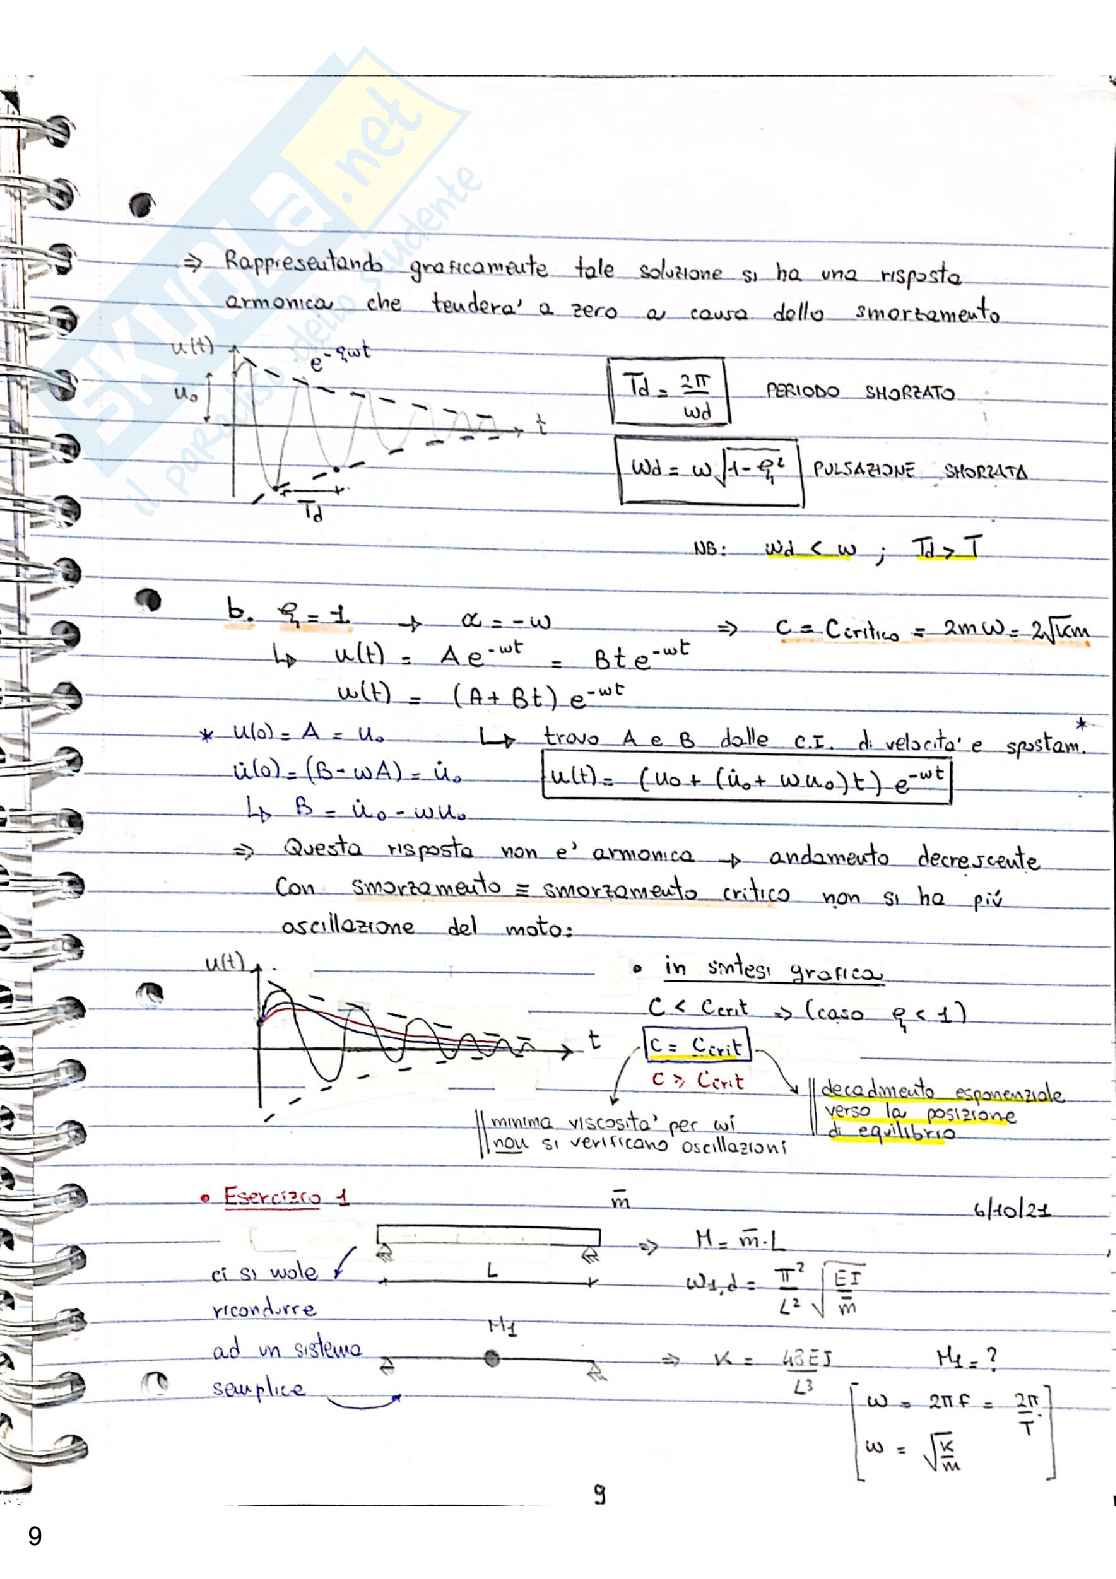 SKUOLA.net
il paradiso dello studente
⇒ Rappresentando graficamente tale soluzione si ha una risposta
armonica che tenderà a zero a causa dello smorzamento
u(t)
e^-ξωt
u₀
t
Td
Td = 2π/ωd PERIODO SMORZATO
ωd = ω√(1-ξ²) PULSAZIONE SMORZATA
NB: ωd < ω ; Td > T
b. ξ = 1 → α = -ω ⇒ C = Ccritico = 2mω = 2√km
↳ u(t) = A e^-ωt = B t e^-ωt
u(t) = (A + Bt) e^-ωt
* u(0) = A = u₀ ↳ trovo A e B dalle C.I. di velocità e spostam.*
u̇(0) = (B - ωA) = u̇₀ u(t) = (u₀ + (u̇₀ + ωu₀)t) e^-ωt
↳ B = u̇₀ - ωu₀
⇒ Questa risposta non e' armonica → andamento decrescente
Con smorzamento ≡ smorzamento critico non si ha più
oscillazione del moto:
u(t)
t
• in sintesi grafica
C < Ccrit ⇒ (caso ξ < 1)
C = Ccrit
C > Ccrit
decadimento esponenziale
verso la posizione
di equilibrio
minima viscosita' per cui
non si verificano oscillazioni
• Esercizio 1
m̄
6/10/21
⇒ M = m̄·L
L
ω1,d = π²/L² √(EI/m̄)
ci si vuole
ricondurre
ad un sistema
semplice
M1
⇒ K = 48EJ/L3 M1 = ?
ω = 2πf = 2π/T
ω = √(K/m)
9
9